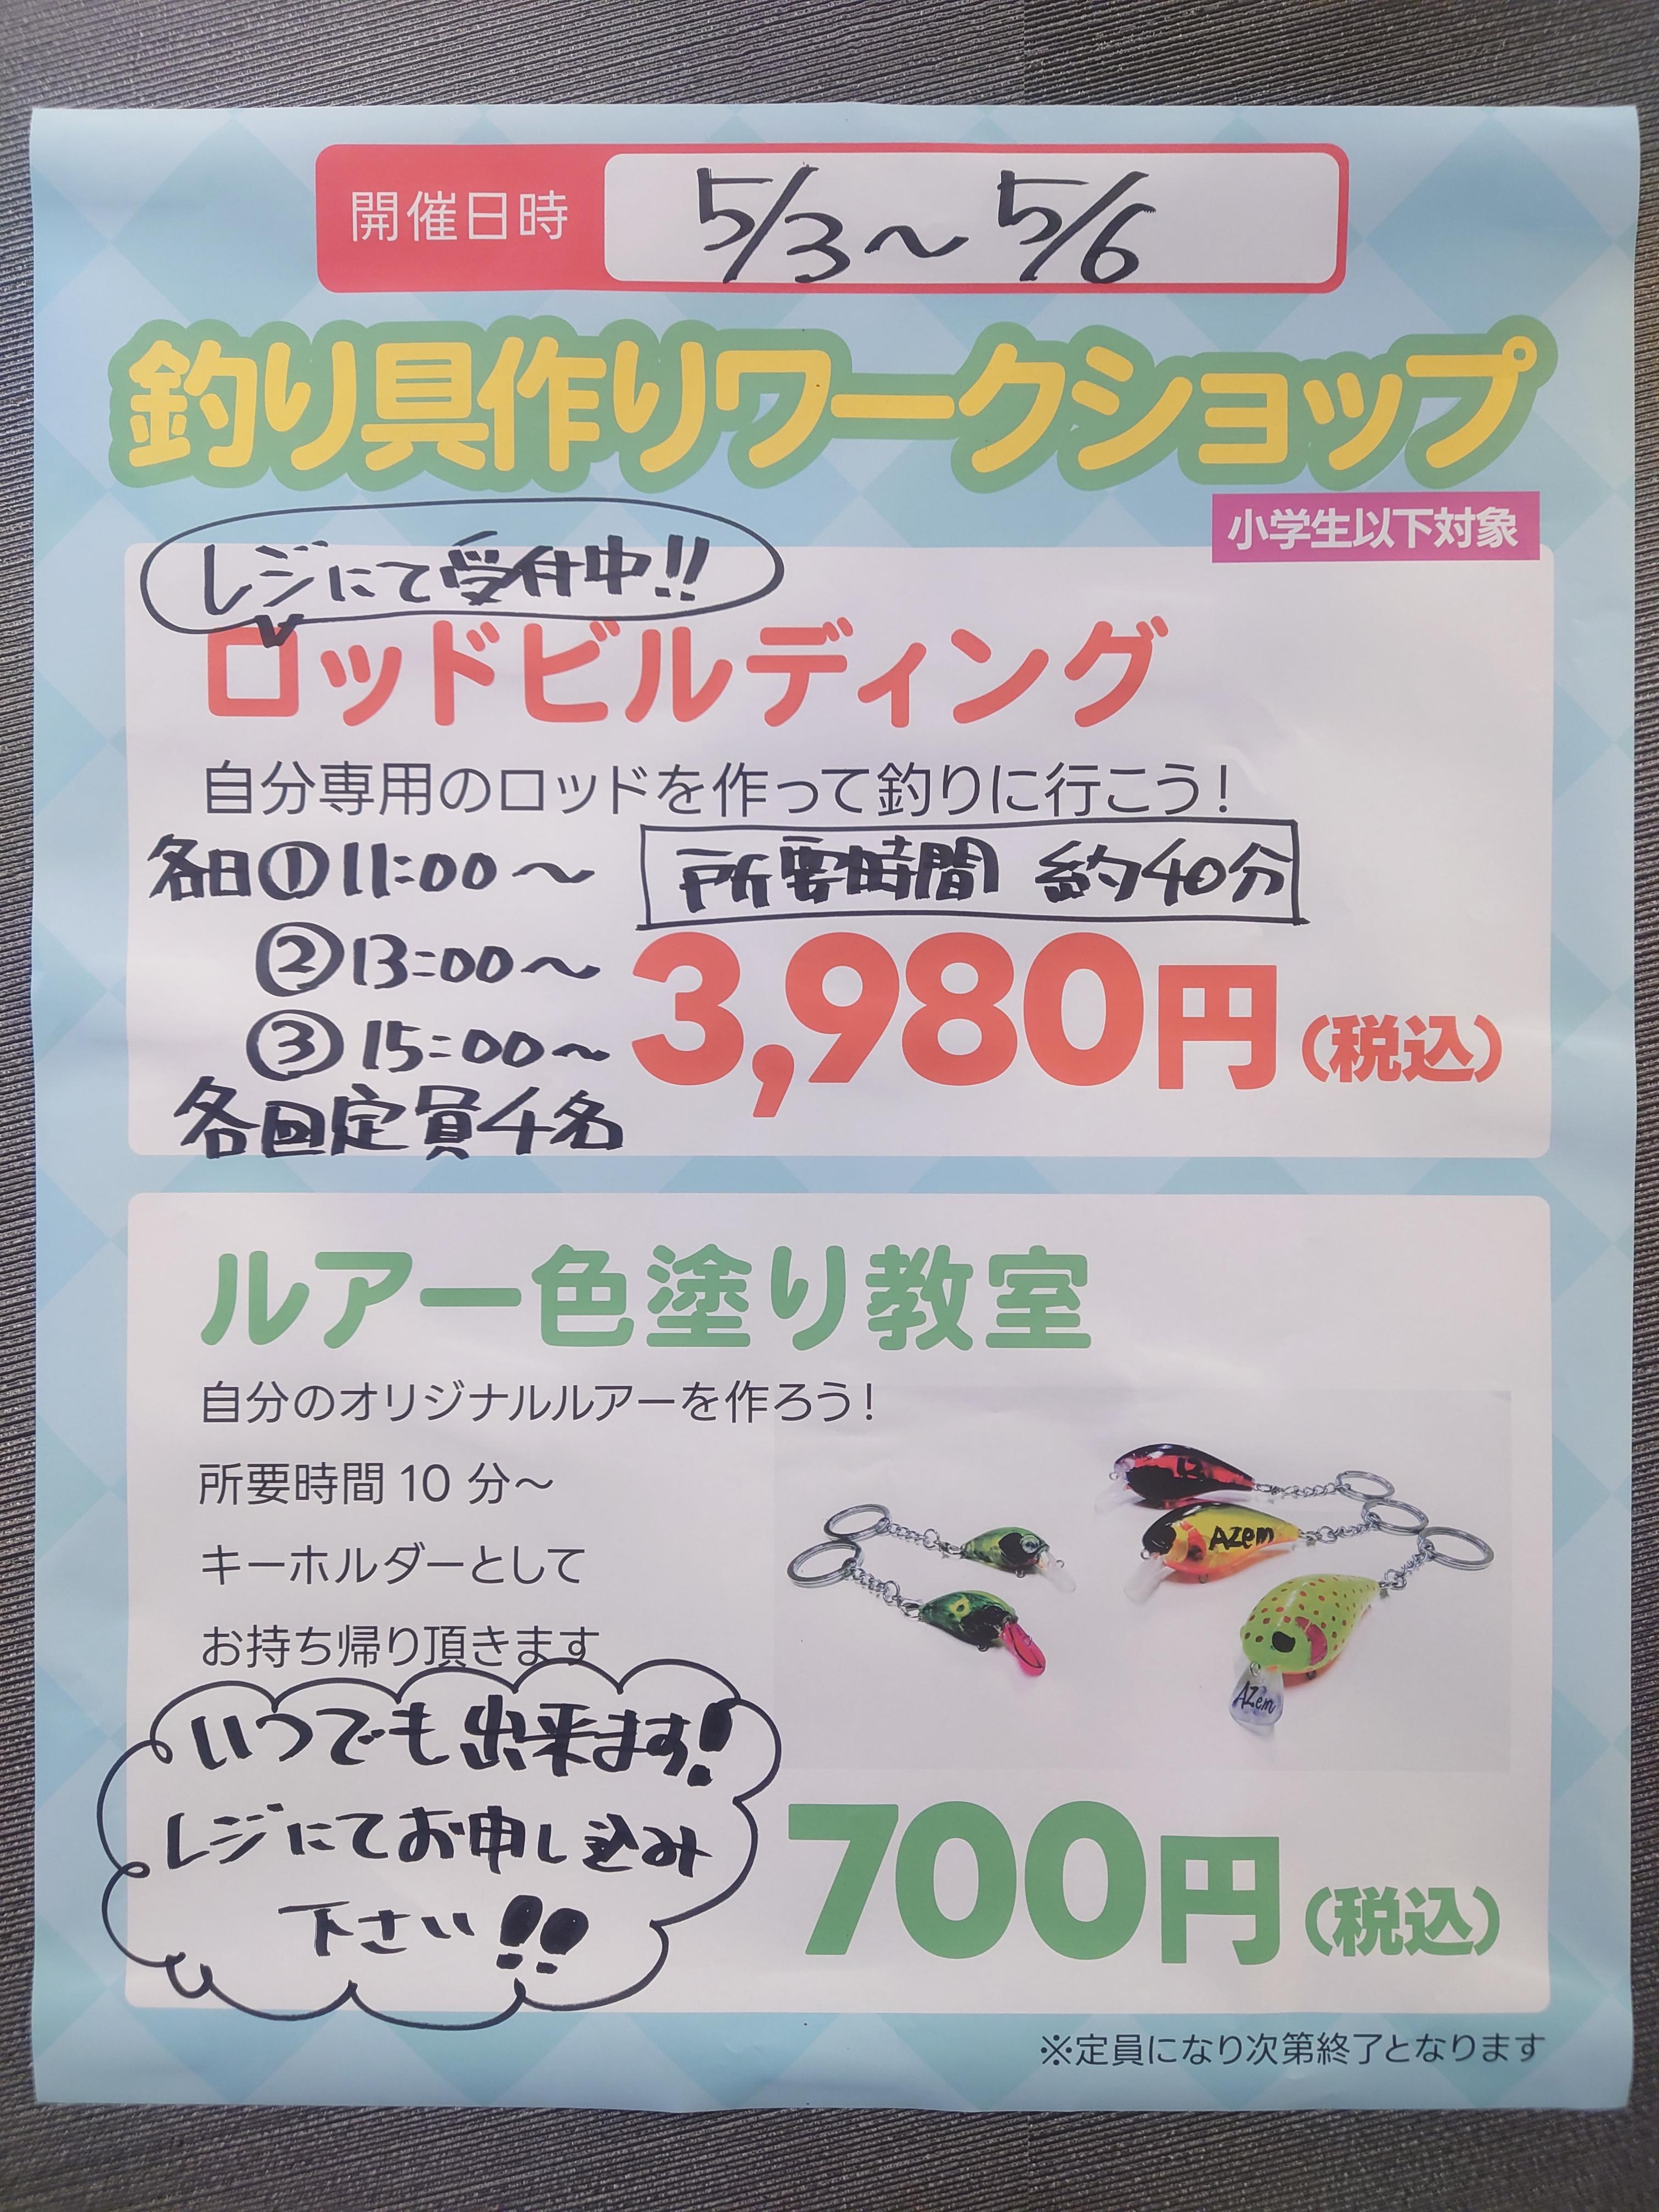 開催日時 5/3～5/6
釣り具作りワークショップ
小学生以下対象
レジにて受付中!!
ロッドビルディング
自分専用のロッドを作って釣りに行こう！
各日①11:00～ 所要時間 約40分
②13:00～
③15:00～
3,980円（税込）
各回定員4名
ルアー色塗り教室
自分のオリジナルルアーを作ろう！
所要時間 10 分～
キーホルダーとして
お持ち帰り頂きます
AZem
AZem
いつでも出来ます!
レジにてお申し込み
下さい!!
700円（税込）
※定員になり次第終了となります